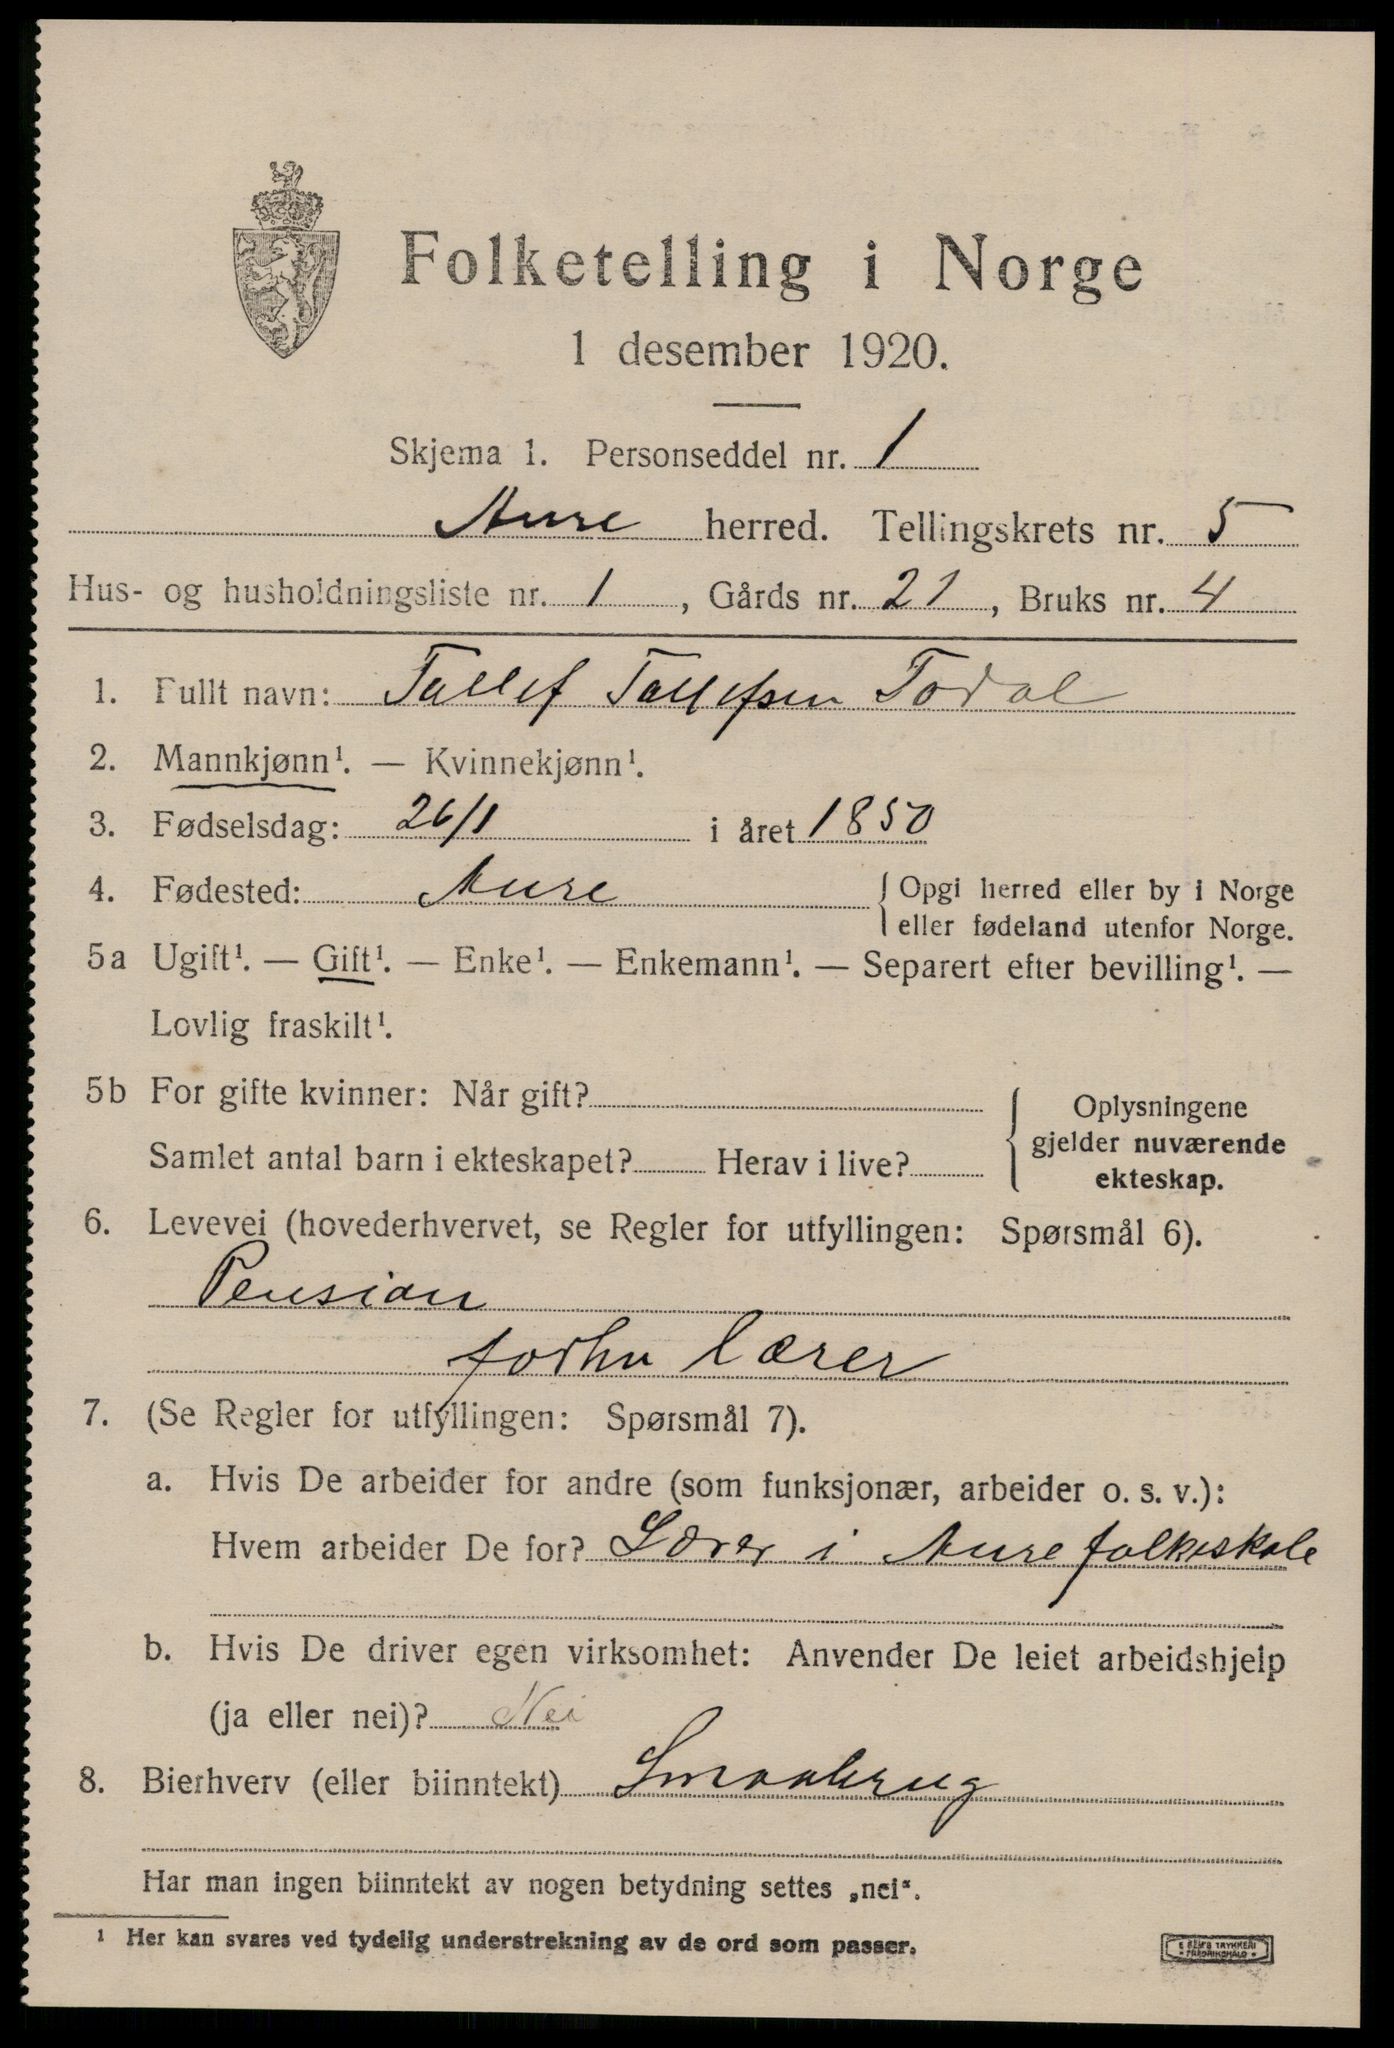 Folketelling i Norge
1 desember 1920.
Skjema 1. Personseddel nr. 1
Aure herred. Tellingskrets nr. 5
Hus- og husholdningsliste nr. 1, Gårds nr. 21, Bruks nr. 4
1. Fullt navn: Tallef Tallefsen Todal
2. Mannkjønn¹. — Kvinnekjønn¹.
3. Fødselsdag: 26/1 i året 1850
4. Fødested: Aure { Opgi herred eller by i Norge
eller fødeland utenfor Norge.
5a Ugift¹. — Gift¹. — Enke¹. — Enkemann¹. — Separert efter bevilling¹. —
Lovlig fraskilt¹.
5b For gifte kvinner: Når gift?
Samlet antal barn i ekteskapet? Herav i live?
Oplysningene
gjelder nuværende
ekteskap.
6. Levevei (hovederhvervet, se Regler for utfyllingen: Spørsmål 6).
Pension
forhv lærer
7. (Se Regler for utfyllingen: Spørsmål 7).
a. Hvis De arbeider for andre (som funksjonær, arbeider o. s. v.):
Hvem arbeider De for? Lærer i Aure folkeskole
b. Hvis De driver egen virksomhet: Anvender De leiet arbeidshjelp
(ja eller nei)? Nei
8. Bierhverv (eller biinntekt) Smaabrug
Har man ingen biinntekt av nogen betydning settes „nei“.
¹ Her kan svares ved tydelig understrekning av de ord som passer.
TRYKKERI
FREDRIKSHALD